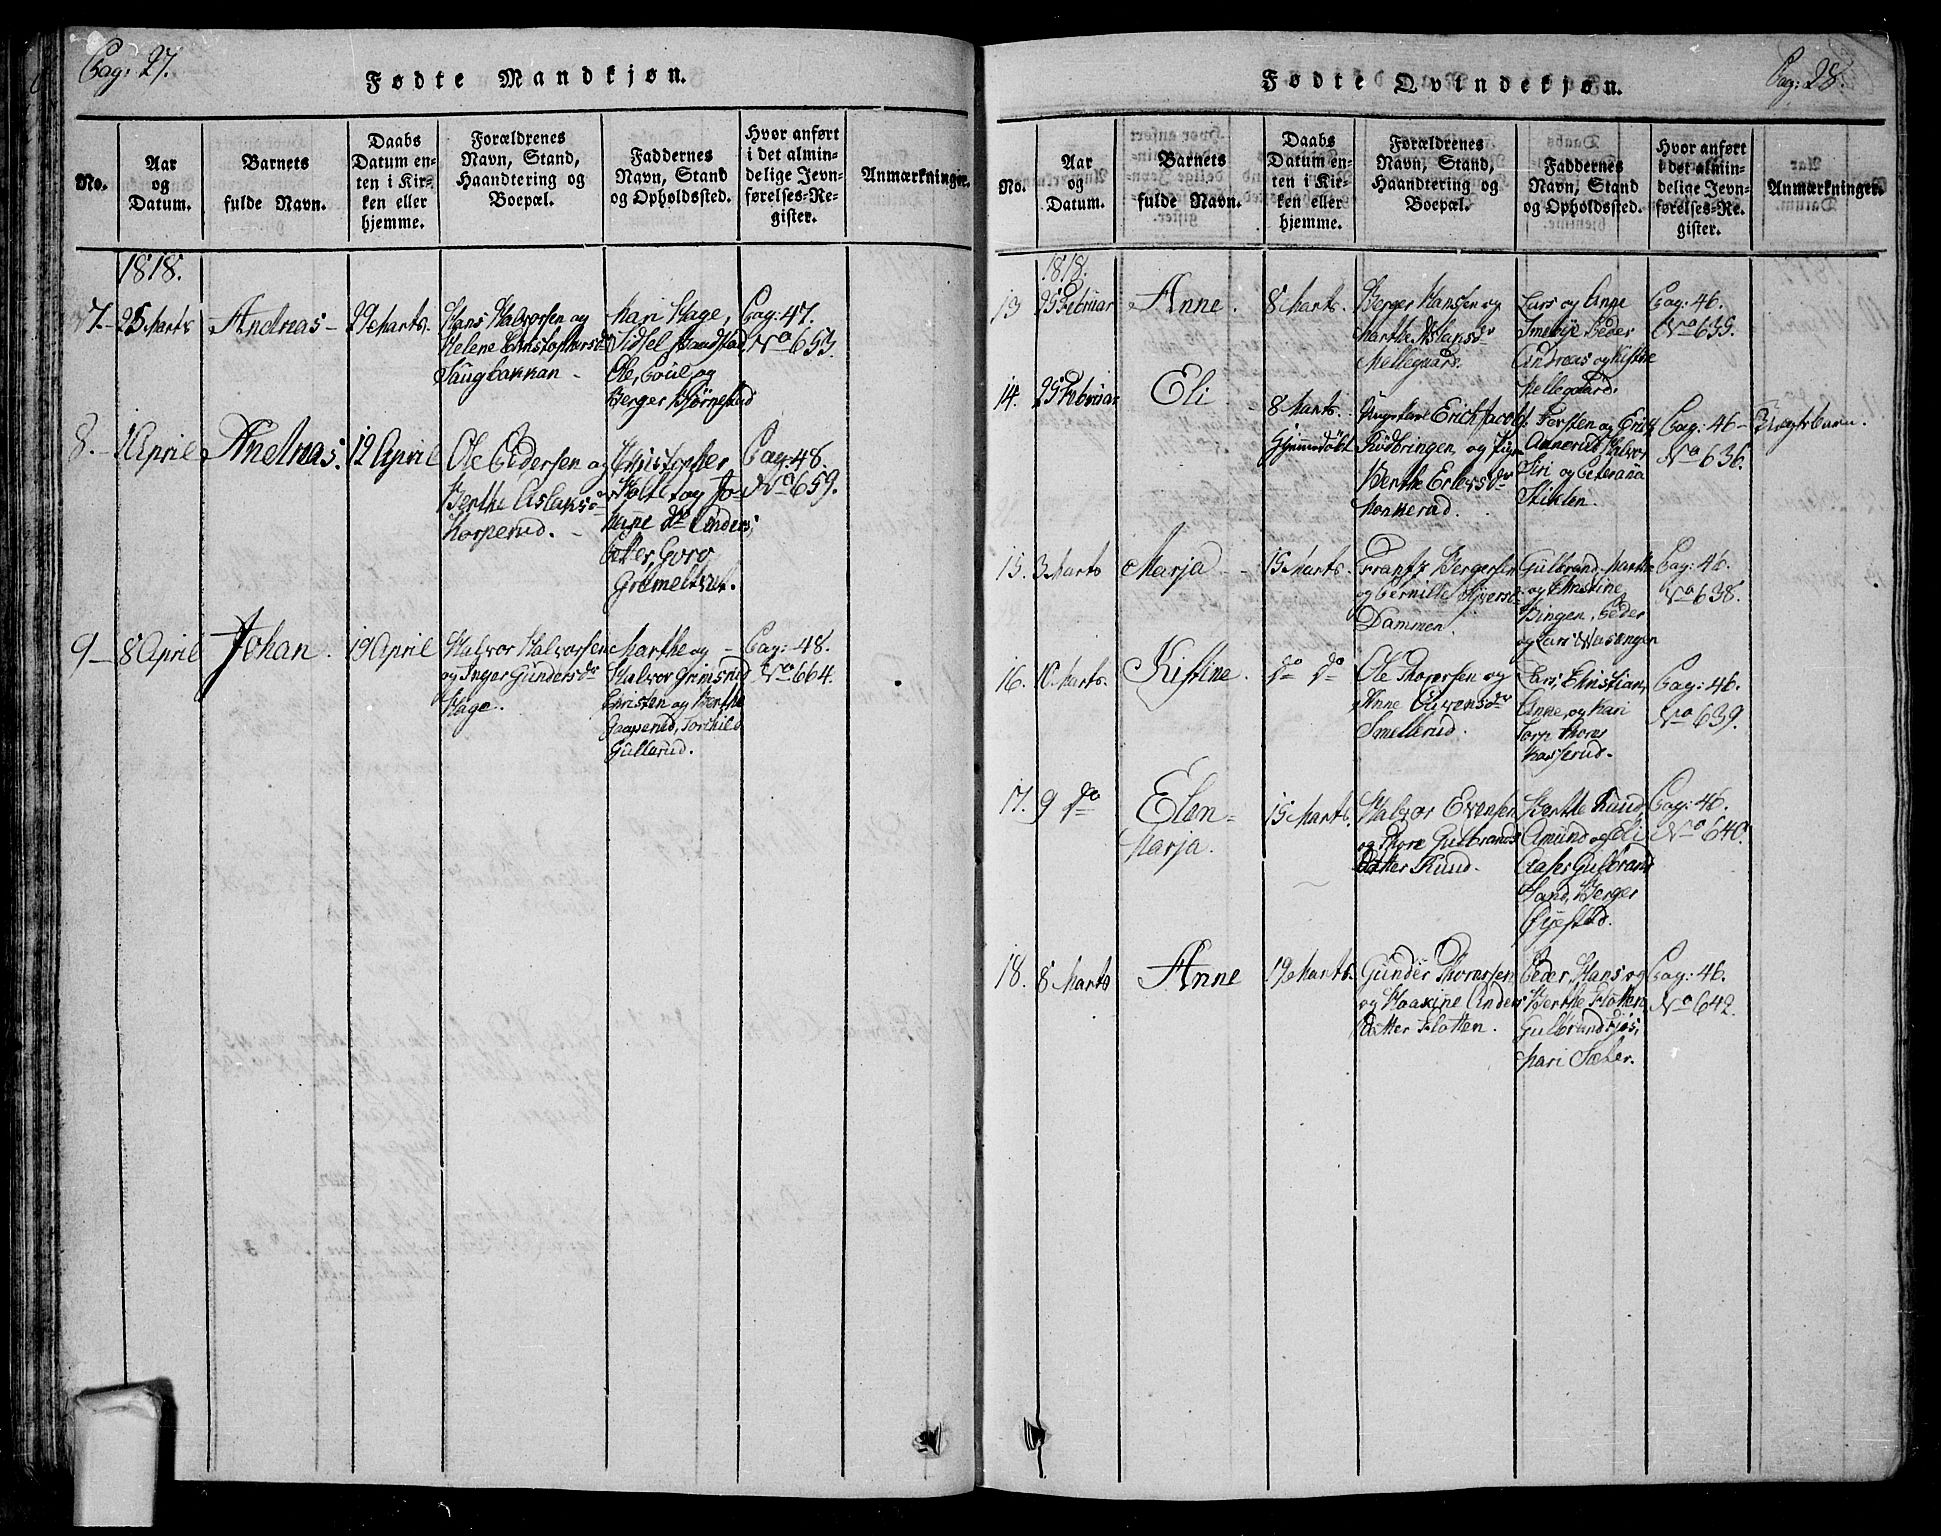 Pag: 27.
Fødte Mandkjøn.
No.
Aar
og
Datum.
Barnets
fulde Navn.
Daabs
Datum en-
ten i Kir-
ken eller
hjemme.
Forældrenes
Navn, Stand,
Haandtering og
Boepæl.
Faddernes
Navn, Stand
og Opholdssted.
Hvor anført
i det almin-
delige Jevn-
førelses-Re-
gister.
Anmærkninger.
1818.
7. 25 Marts
Andreas
29 Marts.
Hans Halvorsen og
Helene Christophersdr
Haugbakkan
Mari Hage,
Sidsel
Ole, Poul og
Berger Bjørnestad
Pag: 47.
No 653.
8. 1 April
Andreas.
12 April
Ole Pedersen og
Berthe Aslaksdr
Torperud.
Christopher
Holt og Jo-
do Anders,
Petter, Goro
Pag: 48.
No 659.
9 8 April
Johan.
19 April
Halvor Halvorsen
og Inger Gundersdr
Hage.
Marthe og
Halvor Grimsrud
Christen og Berthe
Gaaserud, Torkild
Gullerud.
Pag: 48.
No 664.
Pag: 28.
Fødte Qvindekjøn.
No.
Aar
og
Datum.
Barnets
fulde Navn.
Daabs
Datum en-
ten i Kir-
ken eller
hjemme.
Forældrenes
Navn, Stand,
Haandtering og
Boepæl.
Faddernes
Navn, Stand
og Opholdssted.
Hvor anført
i det almin-
delige Jevn-
førelses-Re-
gister.
Anmærkninger.
1818.
13 25 Februar
Anne.
8 Marts.
Berger Hansen og
Marthe Aslaksdr
Mellegaard.
Lars og Anne
Smebye Peder
Andreas og Kistine
Mellegaard.
Pag: 46.
No 635.
14. 25 Februar
Eli
8 Marts.
Hjemmedøbt
Ungekarl Erich Jacobs.
Kidbringen og Pigen
Berthe Erlexsdr
Monserud.
Torsten og Erich
Annerud Halvor
Siri og Peternille
Stiklen.
Pag: 46
No 636.
Uægtebarn.
15. 3 Marts
Marja
15 Marts.
Frantz Bergersen
og Pernille Syversd.
Dammen.
Gulbrand, Marthe
og Christine
Bingen, Peder
og Lars Weisengen
Pag: 46.
No 638.
16. 10 Marts.
Kistine.
do do
Ole Thoresen og
Anne Evensdr
Smellerud.
Lars, Christian,
Anne, og Kari
Torp Thores
Kasserud.
Pag: 46.
No 639.
17. 9 do
Elen
Marja.
15 Marts.
Halvor Evensen
og Thore Gulbrands
datter Ruud.
Berthe Ruud,
Amund og Eli
Aaser Gulbrand
Sand, Berger
Øyestad.
Pag: 46.
No 640.
18. 8 Marts
Anne
19 Marts.
Gunder Thoresen
og Maaxine Anders
datter Flatten.
Peder, Hans og
Berthe Flatten,
Gulbrand
Mari Sæter.
Pag: 46.
No 642.